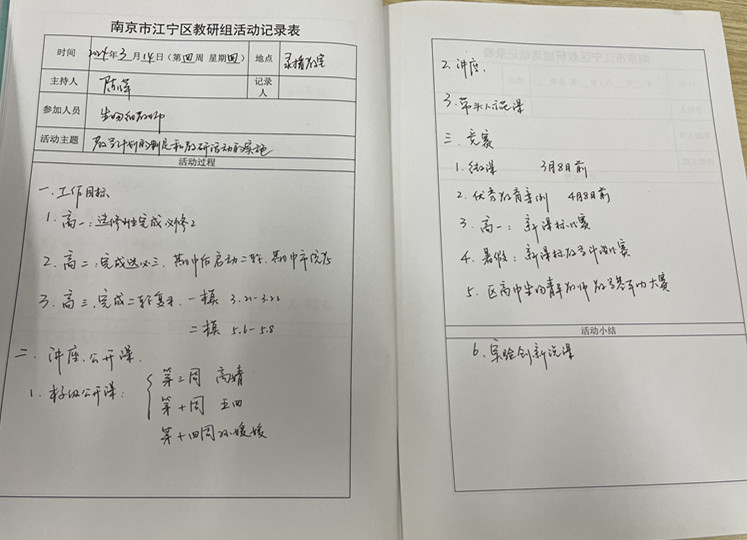 南京市江宁区教研组活动记录表
时间 2024年3月14日（第四周 星期四） 地点 录播教室
主持人 陈萍 记录人
参加人员 生物组教师
活动主题 教学计划的制定和教研活动的实施
活动过程
一.工作目标
1.高一：选修班完成必修2
2.高二：完成选必三，期中后启动二轮，期中市统考
3.高三：完成二轮复习，一模 3.21-3.22
二模 5.6-5.8
二.讲座.公开课.
1.校级公开课：
第三周 高婧
第十周 王四
第十四周 孙媛媛
2.讲座.
3.带头人示范课
三.竞赛
1.微课 3月8日前
2.优秀教育案例 4月8日前
3.高一：新课标比赛
4.暑假：新课标教学计设比赛
5.区高中生物青年教师教学基本功大赛
活动小结
6.实验创新说课